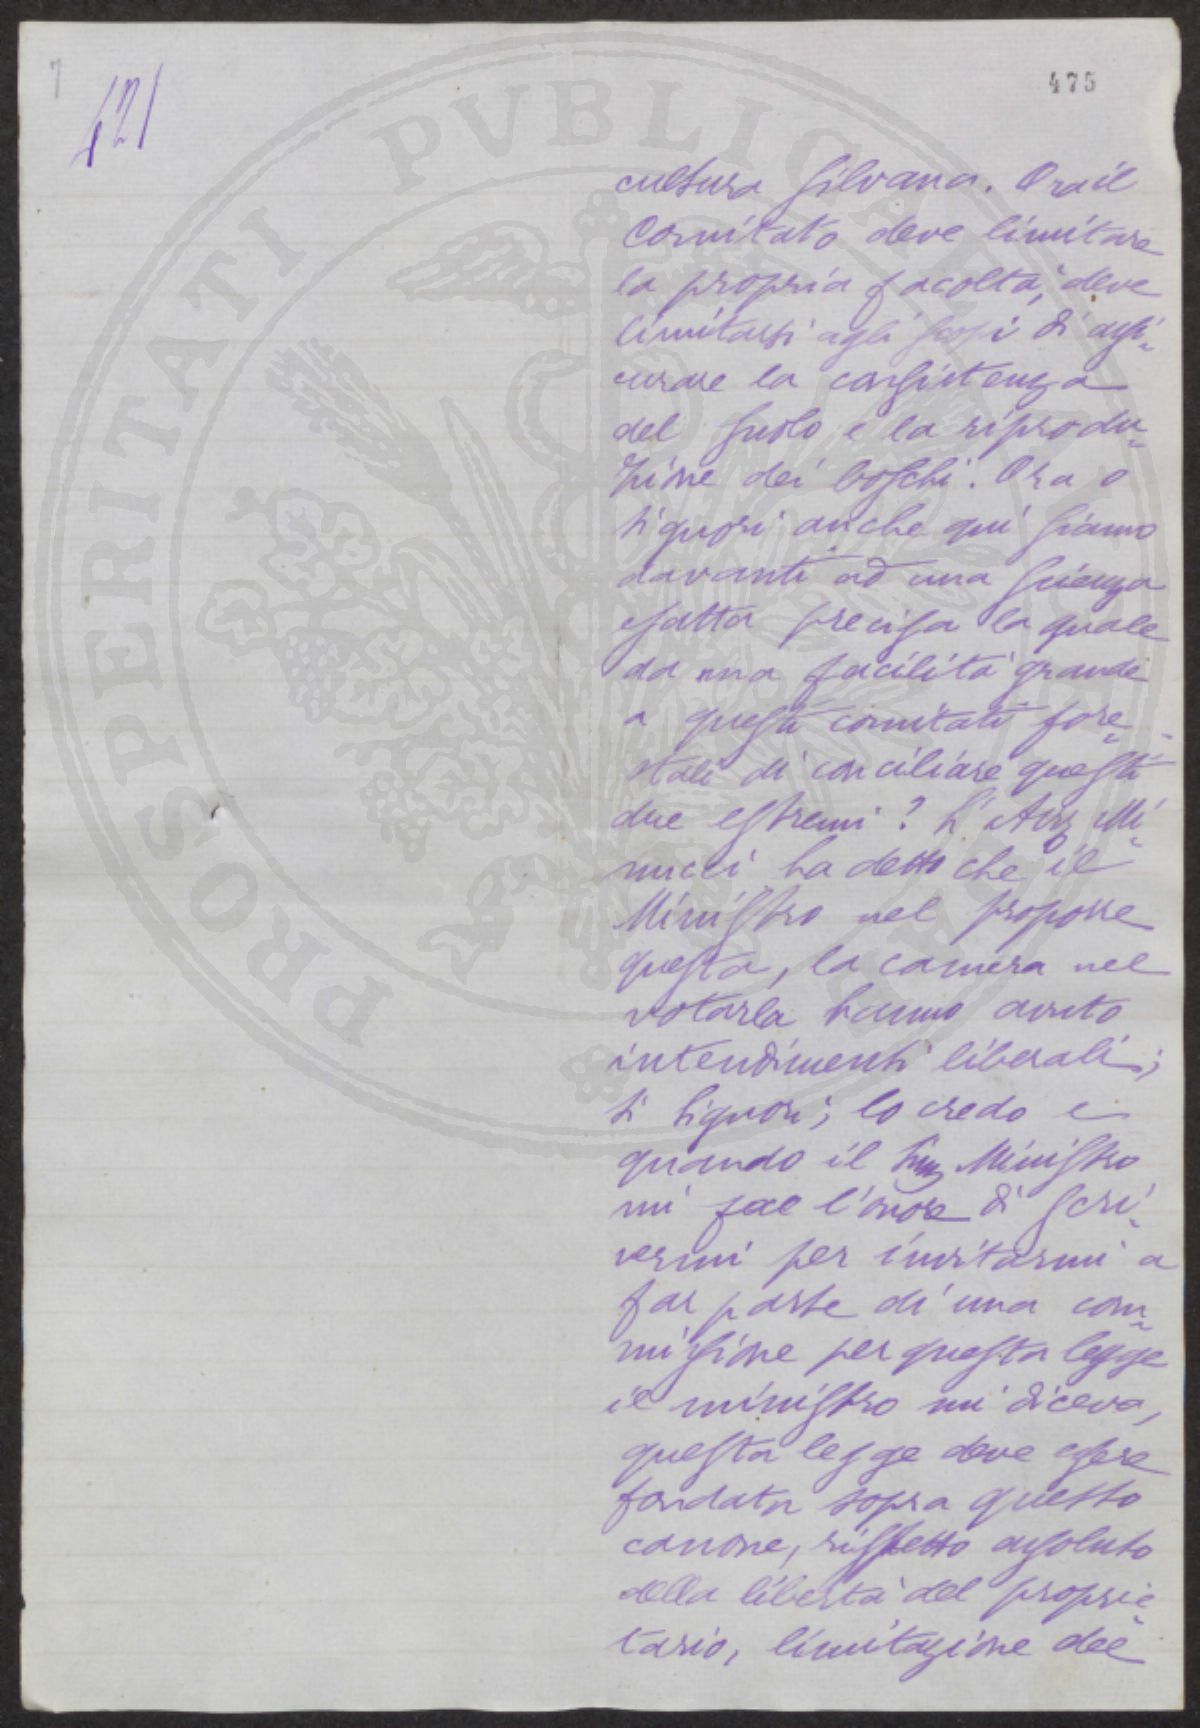 7
421
475
cultura silvana. Ora il
Comitato deve limitare
la propria facoltà, deve
limitarsi agli scopi di assi-
curare la consistenza
del suolo e la riprodu-
zione dei boschi. Ora o
signori anche qui siamo
davanti ad una scienza
esatta precisa la quale
da una facilità grande
a questi comitati fore-
stali di conciliare questi
due estremi? L'Avv Mi-
nucci ha detto che il
Ministro nel proporre
questa, la camera nel
votarla hanno avuto
intendimenti liberali;
si signori; lo credo e
quando il Sig Ministro
mi fece l'onore di scri-
vermi per invitarmi a
far parte di una com-
missione per questa legge
il ministro mi diceva,
questa legge deve essere
fondata sopra questo
canone, rispetto assoluto
della libertà del proprie-
tario, limitazione del
PROSPERITATI PVBLICAE